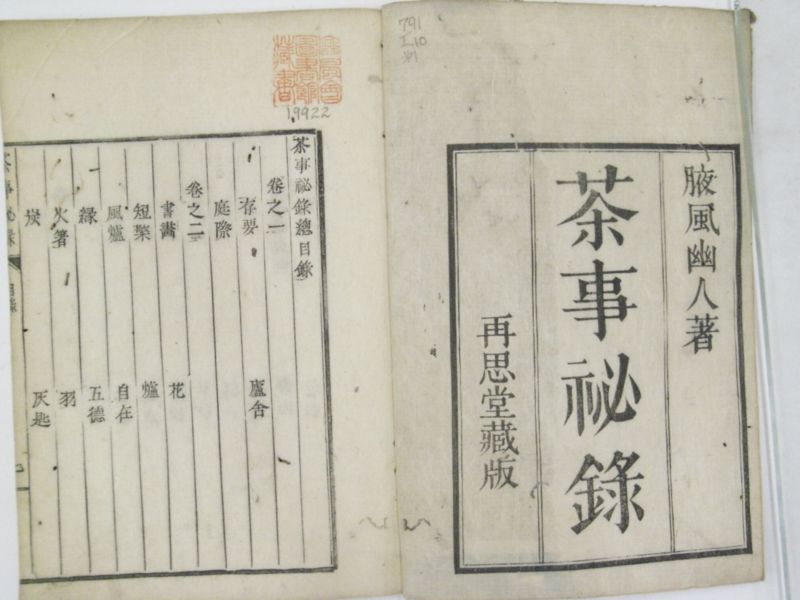 791
腋風幽人著
茶事祕錄
再思堂藏版
19922
茶事祕錄總目錄
卷之一
存要 廬舍
庭除
卷之二
書畫 花
短檠 爐
風爐 自在
緣 五德
火箸 羽
炭 灰匙
茶事祕錄 目錄